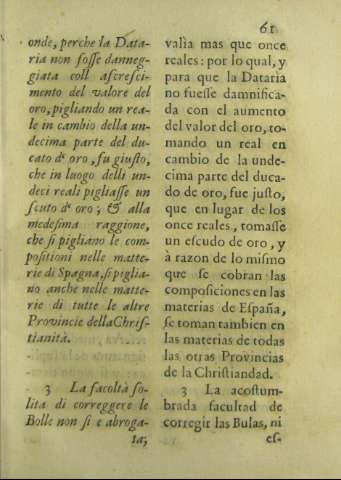 61
onde, perche la Data-
ria non foſſe danneg-
giata coll' aſcreſci-
mento del valore del
oro, pigliando un rea-
le in cambio della un-
decima parte del du-
cato d' oro, fu giuſto,
che in luogo delli un-
deci reali pigliaſſe un
ſcuto d' oro; & alla
medeſima raggione,
che ſi pigliano le com-
poſitioni nelle matte-
rie di Spagna, ſi piglia-
no anche nelle matte-
rie di tutte le altre
Provincie della Chriſ-
tianità.
3 La facoltà ſo-
lita di correggere le
Bolle non ſi e abroga-
ta;
valìa mas que once
reales: por lo qual, y
para que la Dataria
no fueſſe damnifica-
da con el aumento
del valor del oro, to-
mando un real en
cambio de la unde-
cima parte del duca-
do de oro, fue juſto,
que en lugar de los
once reales, tomaſſe
un eſcudo de oro, y
à razon de lo miſmo
que ſe cobran las
compoſiciones en las
materias de Eſpaña,
ſe toman tambien en
las materias de todas
las otras Provincias
de la Chriſtiandad.
3 La acoſtum-
brada facultad de
corregir las Bulas, ni
eſ-